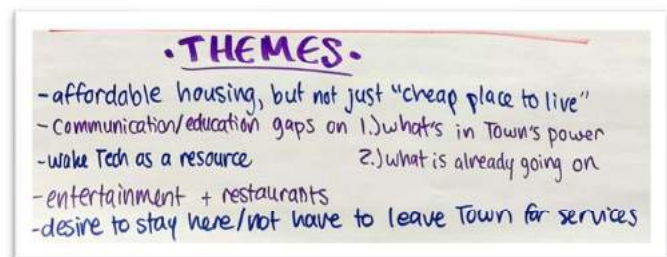 ·THEMES·
-affordable housing, but not just "cheap place to live"
-Communication/education gaps on 1.)what's in Town's power
-Wake Tech as a resource 2.)what is already going on
-entertainment + restaurants
-desire to stay here/not have to leave Town for services